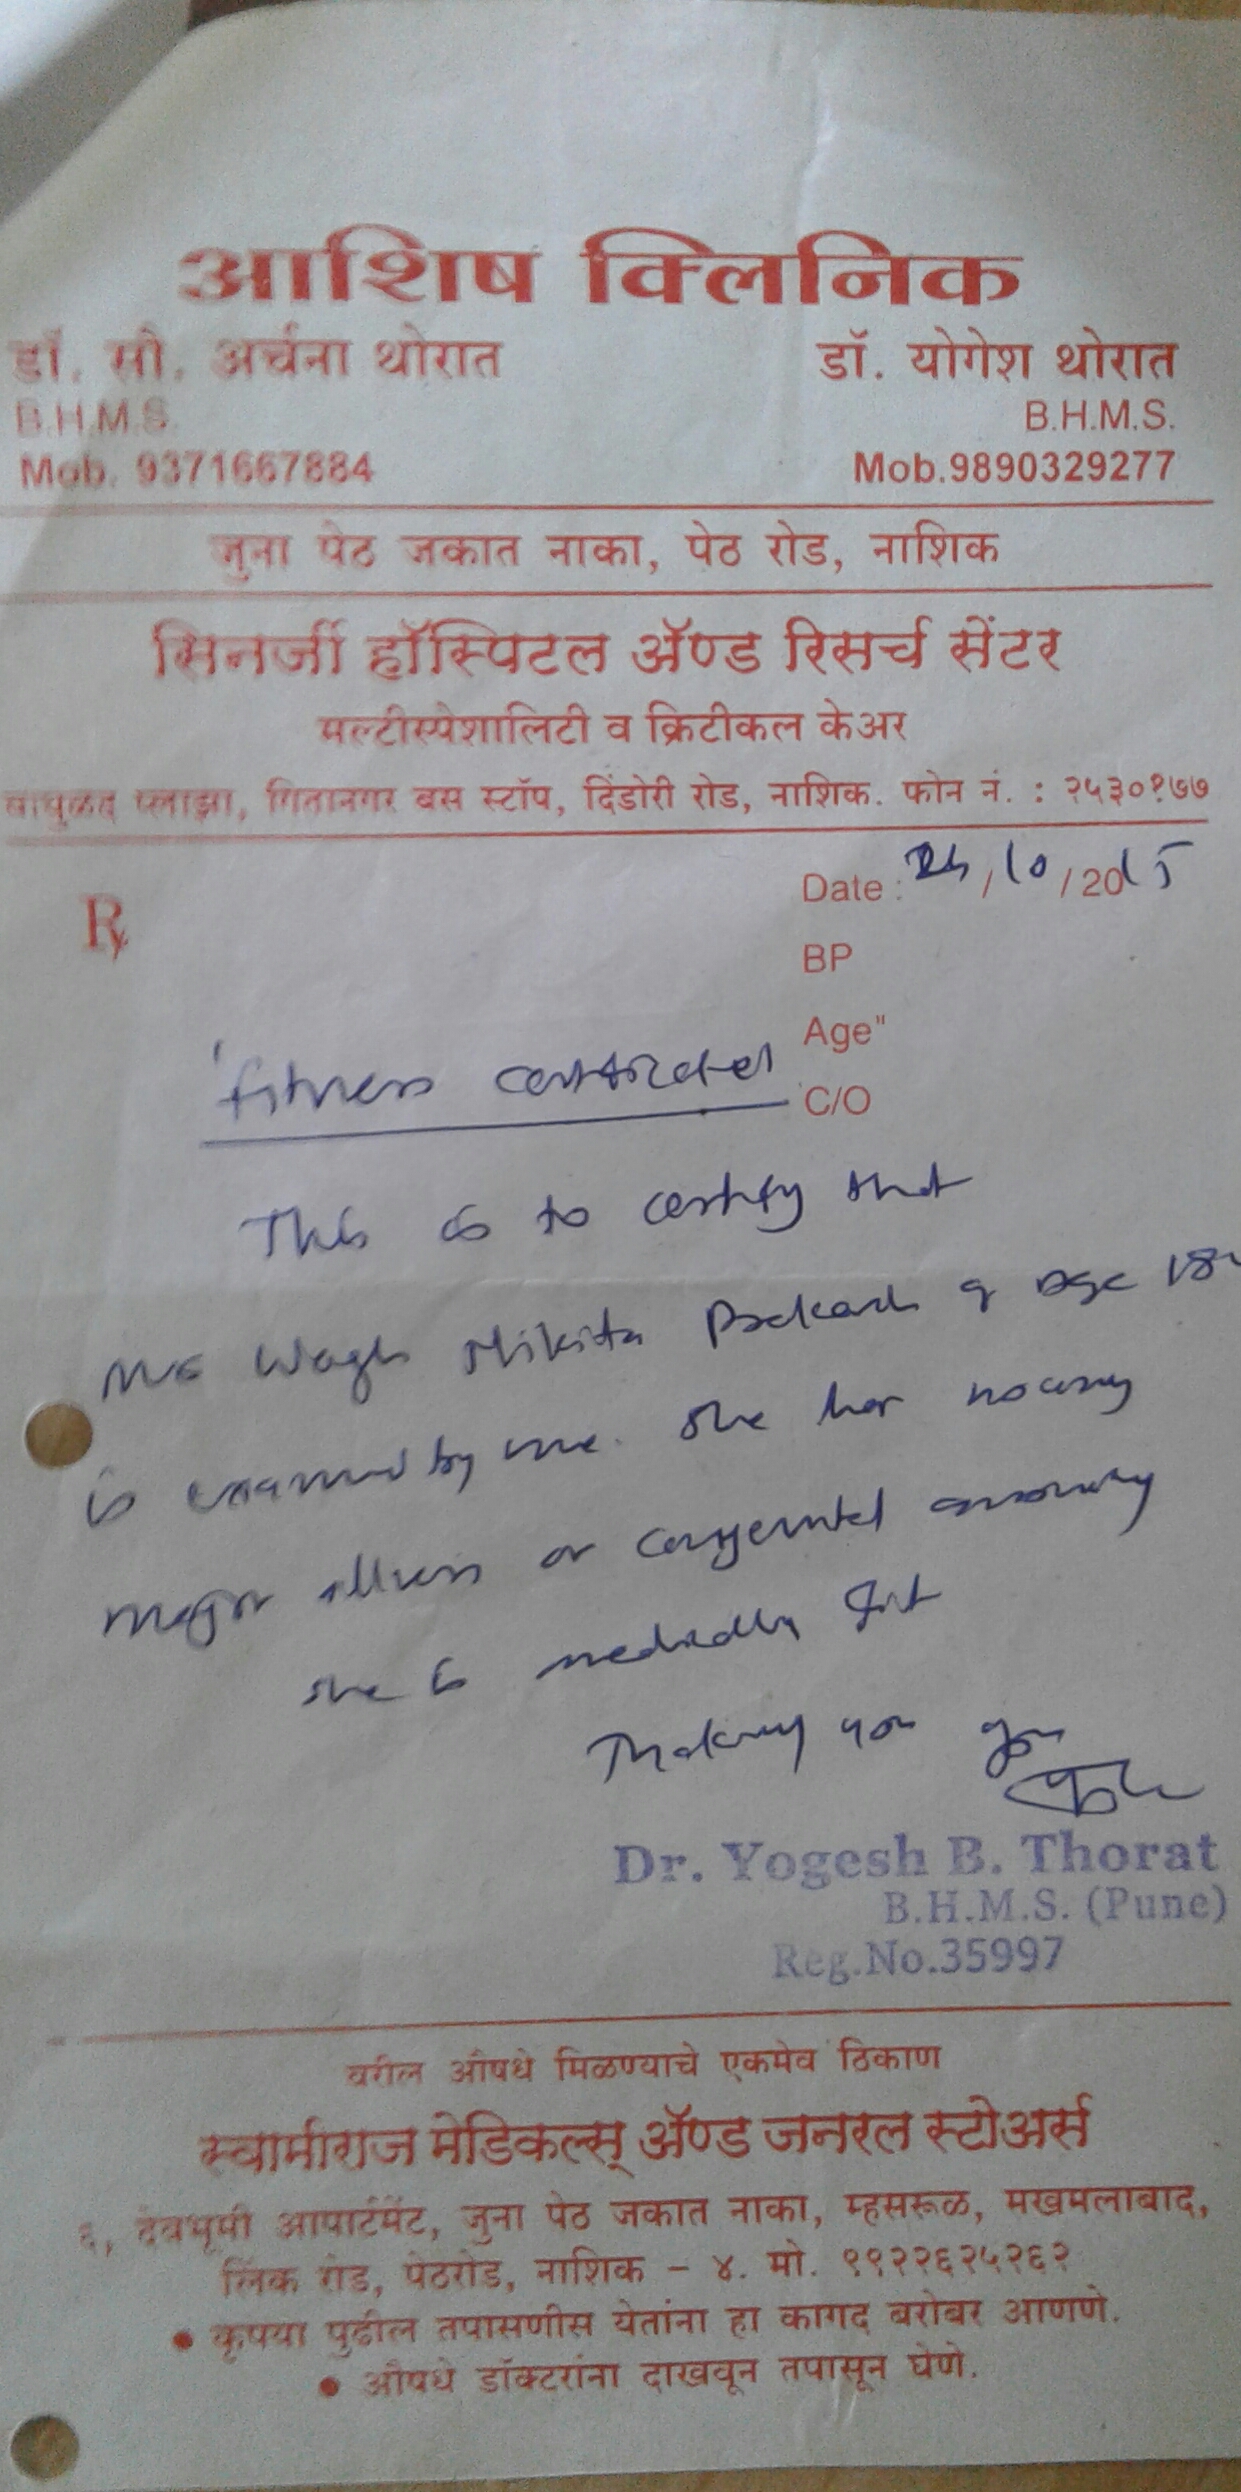 आशिष क्लिनिक
डॉ. सौ. अर्चना थोरात डॉ. योगेश थोरात
B.H.M.S. B.H.M.S.
Mob. 9371667884 Mob.9890329277
जुना पेठ जकात नाका, पेठ रोड, नाशिक
सिनर्जी हॉस्पिटल ॲण्ड रिसर्च सेंटर
मल्टीस्पेशालिटी व क्रिटीकल केअर
प्लाझा, गितानगर बस स्टॉप, दिंडोरी रोड, नाशिक. फोन नं. : २५३०१७७
Date : 24/10/2015
Rx
BP
Age"
fitness
C/O
This is to certify that
Wagh Nikita of age 18
is examined by me. She has no any
major illness or congenital
she is medically fit
Thanking you
Dr. Yogesh B. Thorat
B.H.M.S. (Pune)
Reg.No.35997
वरील औषधे मिळण्याचे एकमेव ठिकाण
स्वामीराज मेडिकल्स् ॲण्ड जनरल स्टोअर्स
६, देवभूमी आपार्टमेंट, जुना पेठ जकात नाका, म्हसरूळ, मखमलाबाद,
लिंक रोड, पेठरोड, नाशिक – ४. मो. ९९२२६२५२६२
• कृपया पुढील तपासणीस येतांना हा कागद बरोबर आणणे.
• औषधे डॉक्टरांना दाखवून तपासून घेणे.